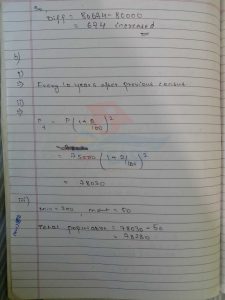 So,
Diff = 80674 - 80000
= 674 increased
b)
i)
=> Every 10 years after previous census
ii)
=>
P = P(1 + R/100)²
= 75000 (1 + 2/100)²
= 78030
iii)
min = 300, mout = 50
Total population = 78030 - 50
= 78280